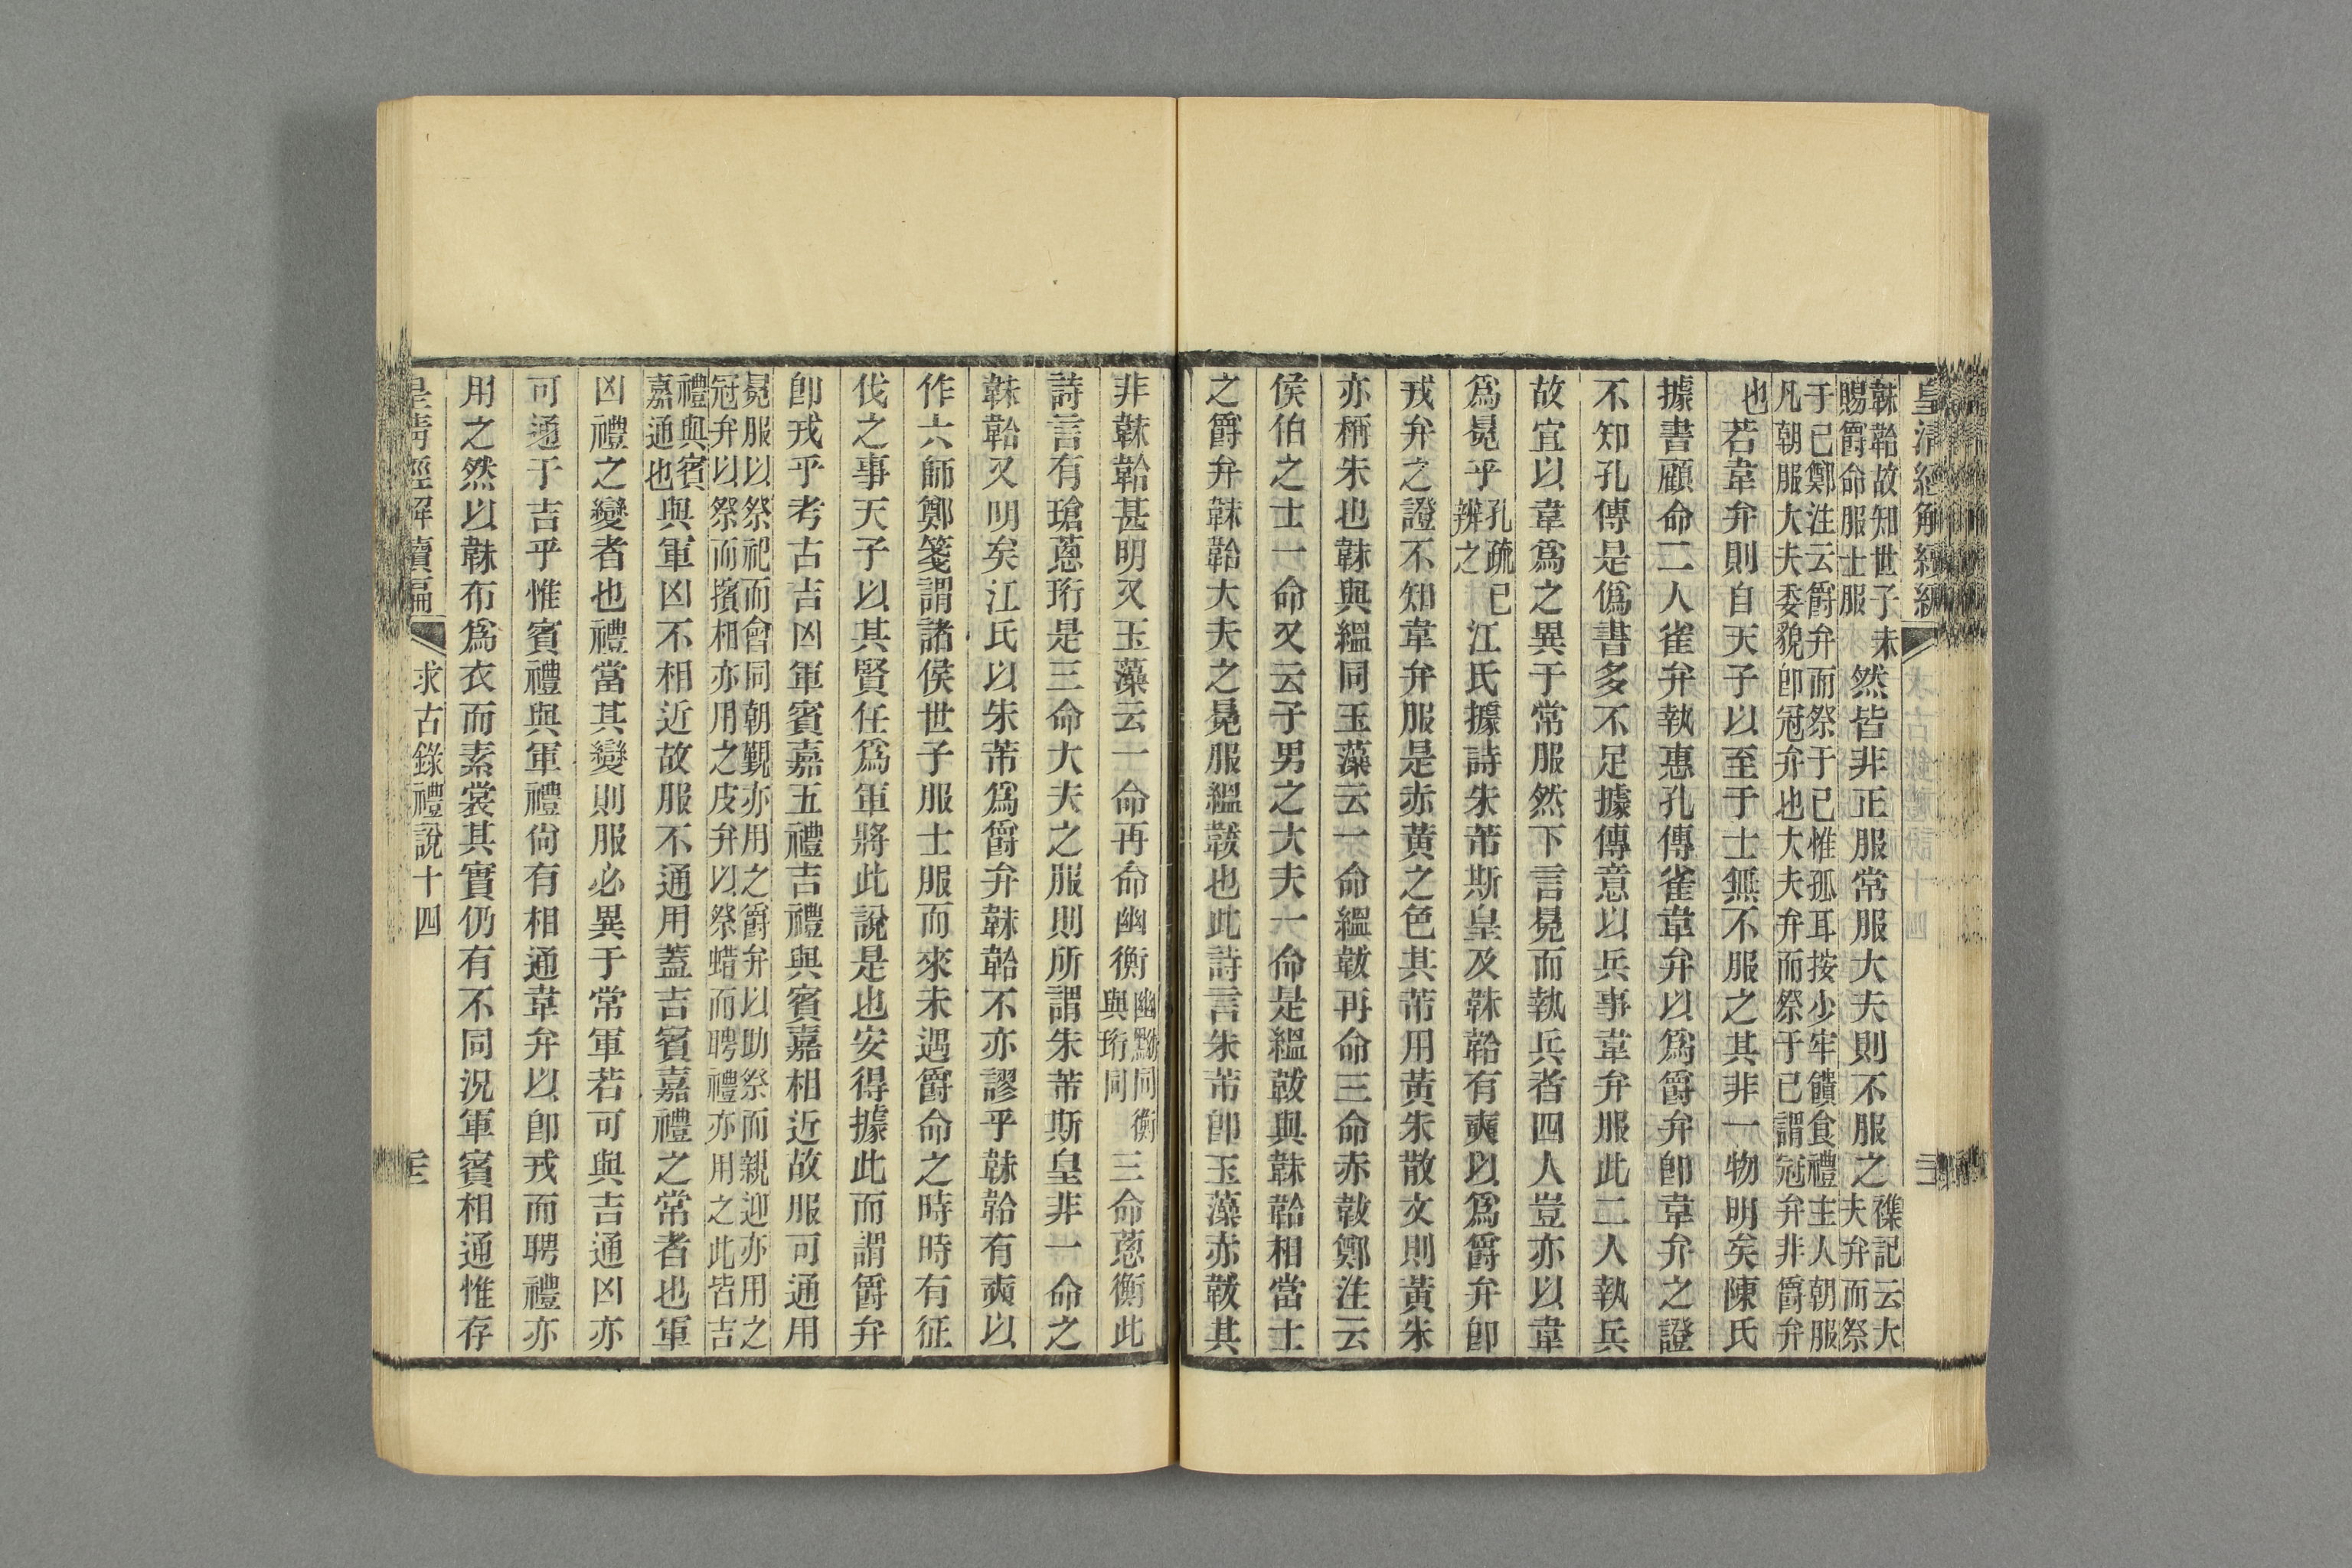 皇清經解續編
韎韐故知世子未
賜爵命服士服
然皆非正服常服大夫則不服之
襍記云大
夫弁而祭
于已鄭注云爵弁而祭于已惟孤耳按少牢饋食禮主人朝服
凡朝服大夫委貌卽冠弁也大夫弁而祭于已謂冠弁非爵弁
也若韋弁則自天子以至于士無不服之其非一物明矣陳氏
據書顧命二人雀弁執惠孔傳雀韋弁以爲爵弁卽韋弁之證
不知孔傳是僞書多不足據傳意以兵事韋弁服此二人執兵
故宜以韋爲之異于常服然下言冕而執兵者四人豈亦以韋
爲冕乎
孔疏已
辨之
江氏據詩朱芾斯皇及韎韐有奭以爲爵弁卽
戎弁之證不知韋弁服是赤黃之色其芾用黃朱散文則黃朱
亦稱朱也韎與縕同玉藻云一命縕韍再命三命赤韍鄭注云
侯伯之士一命又云子男之大夫一命是縕韍與韎韐相當士
之爵弁韎韐大夫之冕服縕韍也此詩言朱芾卽玉藻赤韍其
非韎韐甚明又玉藻云一命再命幽衡
幽黝同衡
與珩同
三命蔥衡此
詩言有瑲蔥珩是三命大夫之服則所謂朱芾斯皇非一命之
韎韐又明矣江氏以朱芾爲爵弁韎韐不亦謬乎韎韐有奭以
作六師鄭箋謂諸侯世子服士服而來未遇爵命之時時有征
伐之事天子以其賢任爲軍將此說是也安得據此而謂爵弁
卽戎乎考古吉凶軍賓嘉五禮吉禮與賓嘉相近故服可通用
冕服以祭祀而會同朝覲亦用之爵弁以助祭而親迎亦用之
冠弁以祭而擯相亦用之皮弁以祭蜡而聘禮亦用之此皆吉
禮與賓
嘉通也
與軍凶不相近故服不通用蓋吉賓嘉禮之常者也軍
凶禮之變者也禮當其變則服必異于常軍若可與吉通凶亦
可通于吉乎惟賓禮與軍禮尙有相通韋弁以卽戎而聘禮亦
用之然以韎布爲衣而素裳其實仍有不同況軍賓相通惟存
皇清經解續編
求古錄禮說十四